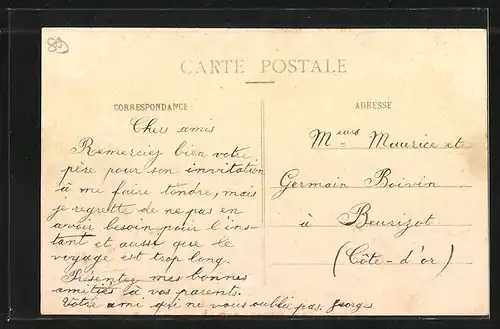 89
CARTE POSTALE
CORRESPONDANCE
ADRESSE
Chers amis
Remerciez bien votre
père pour son invitation
à me faire tondre, mais
je regrette de ne pas en
avoir besoin pour l'ins-
tant et aussi que le
voyage est trop long.
Présentez mes bonnes
amitiés à vos parents.
Votre ami qui ne vous oublie pas. Georges
Meurs Maurice et
Germain Boivin
à Beurizot
(Côte-d'or)